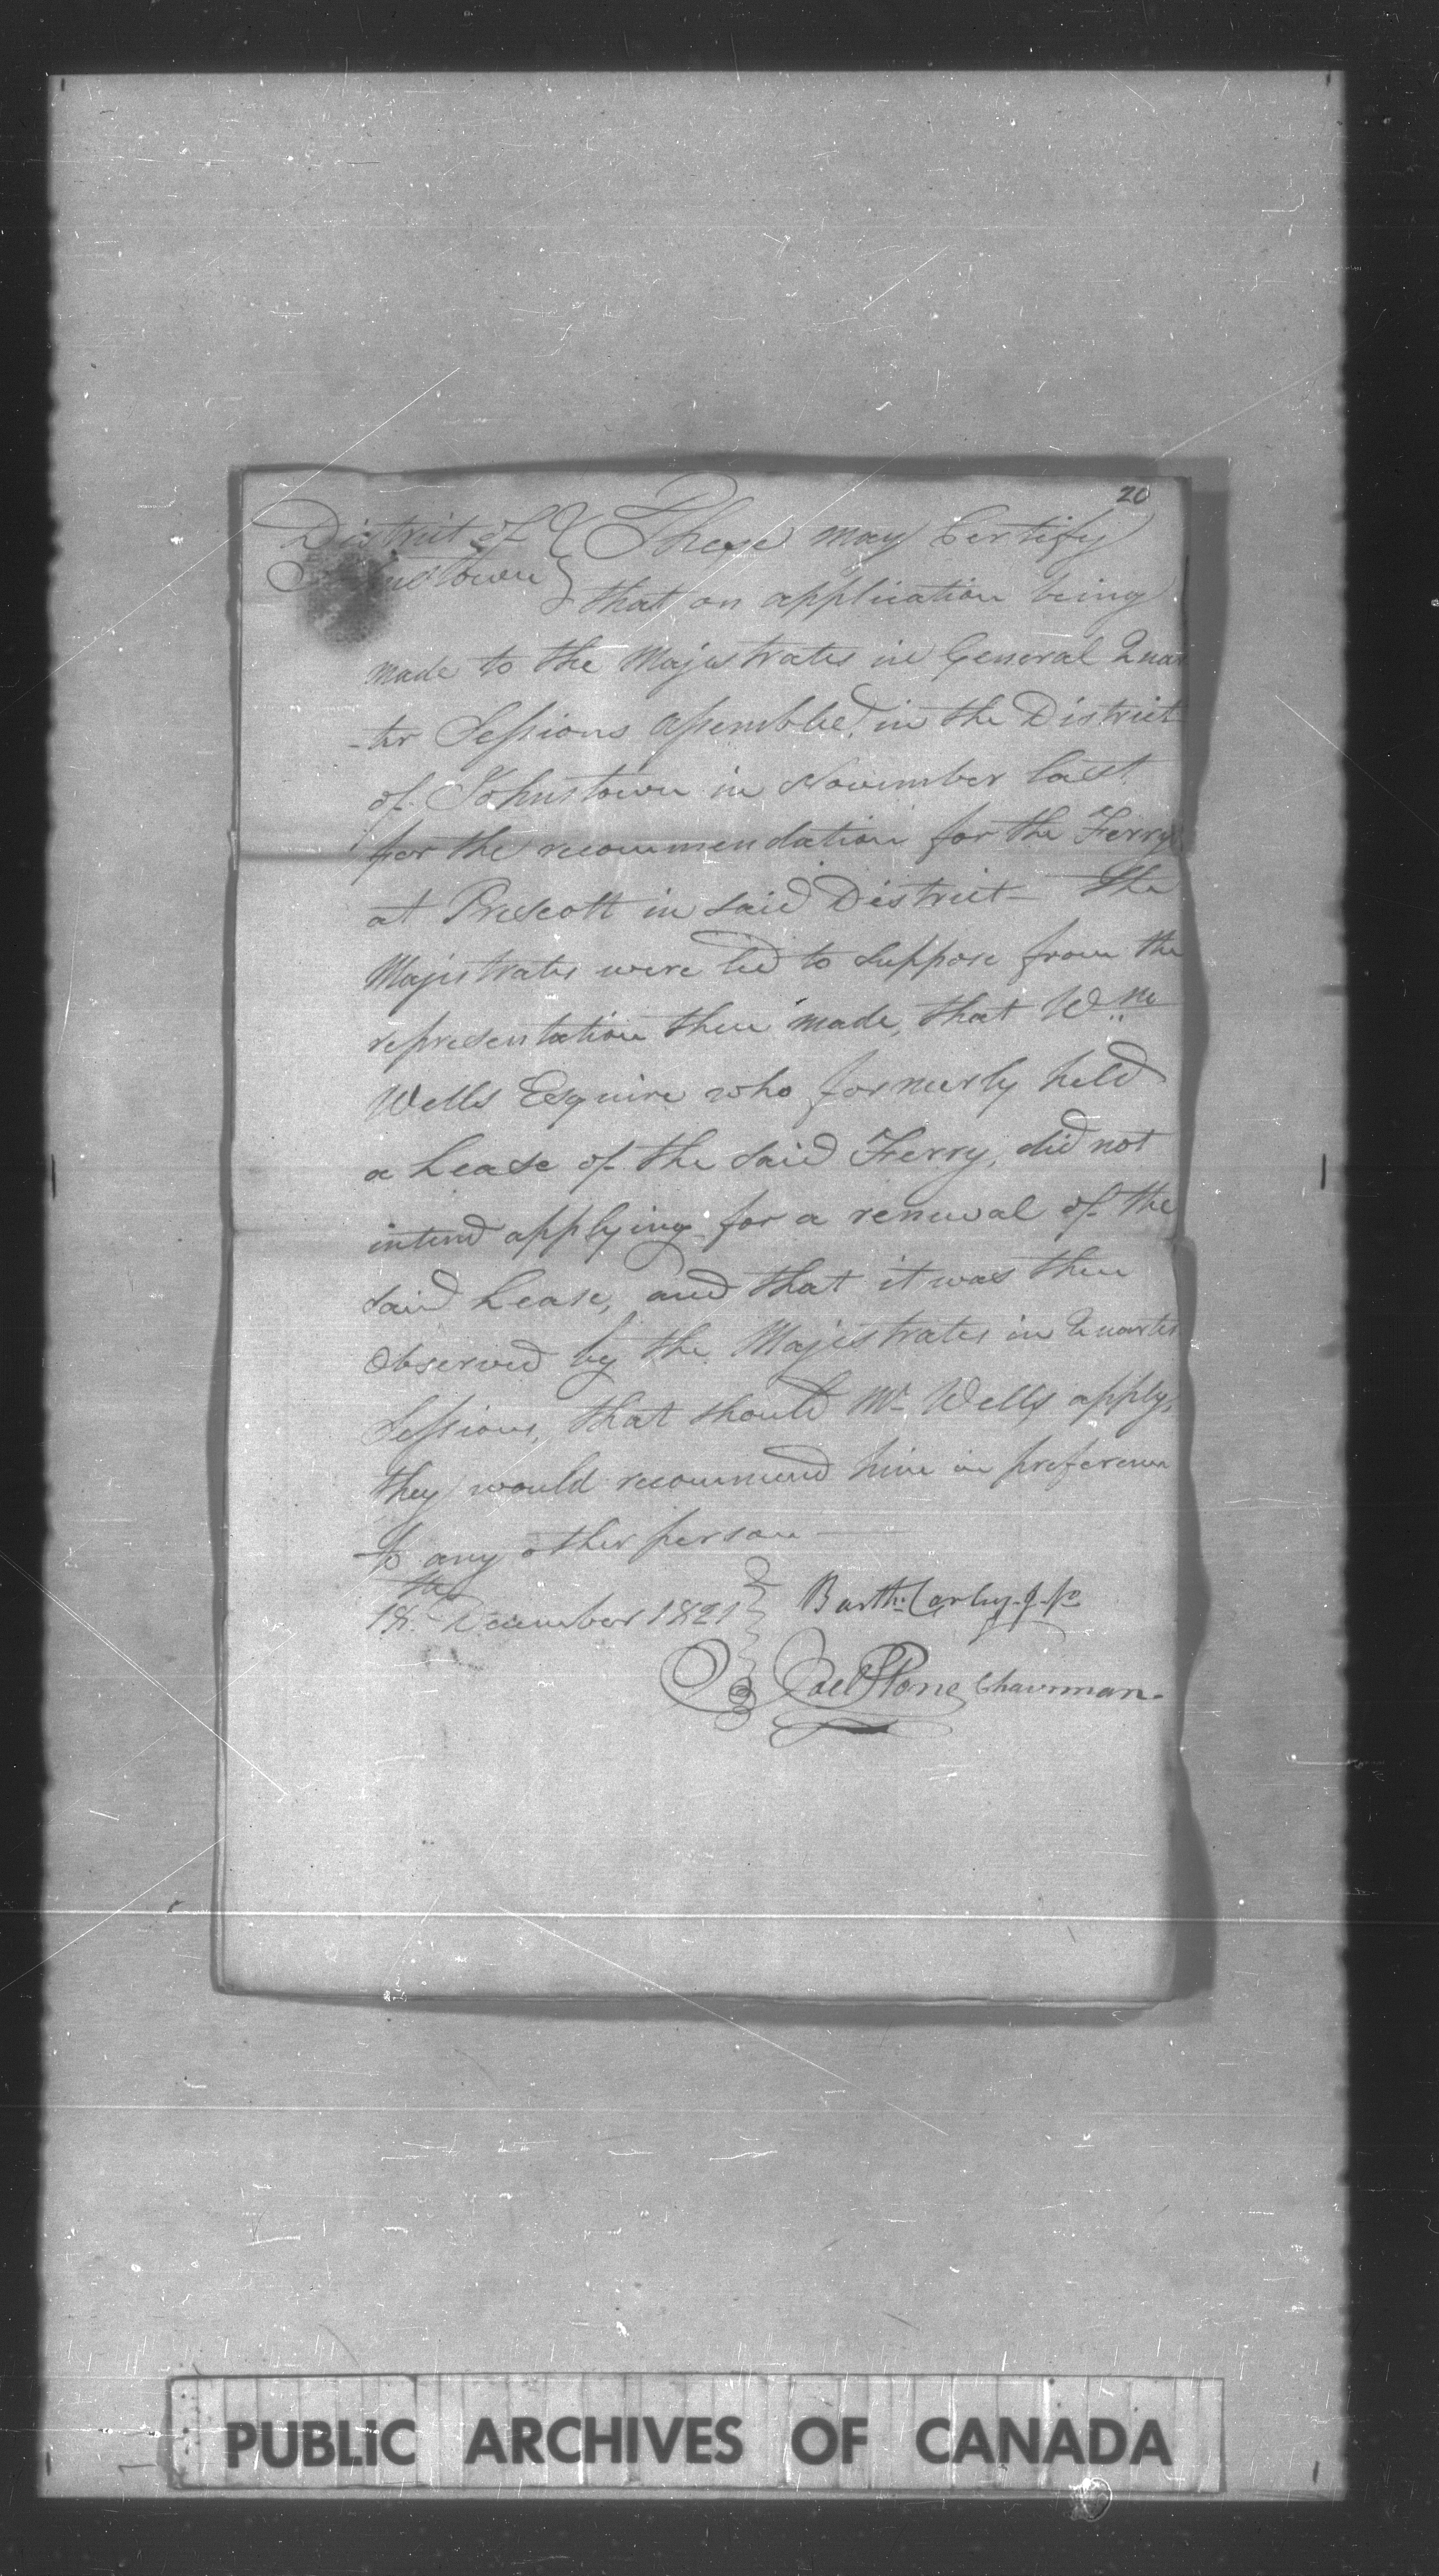 20
District of } These may Certify
Johnstown } that on application being
made to the Majestrates in General Quar
-ter Sessions assembled, in the District
of Johnstown in November last
for the recommendation for the Ferry
at Prescott in said District - The
Majistrates were led to suppose from the
representation then made, that Wm
Wells Esquire who formerly held
a Lease of the said Ferry, did not
intend applying for a renewal of the
said Lease, and that it was then
observed by the Majistrates in Quarter
Sessions, that should Mr Wells apply,
they would recommend him in preference
to any other person —
18th December 1821 } Barth. Carley J. Pe
Joel Stone Chairman.
PUBLIC ARCHIVES OF CANADA